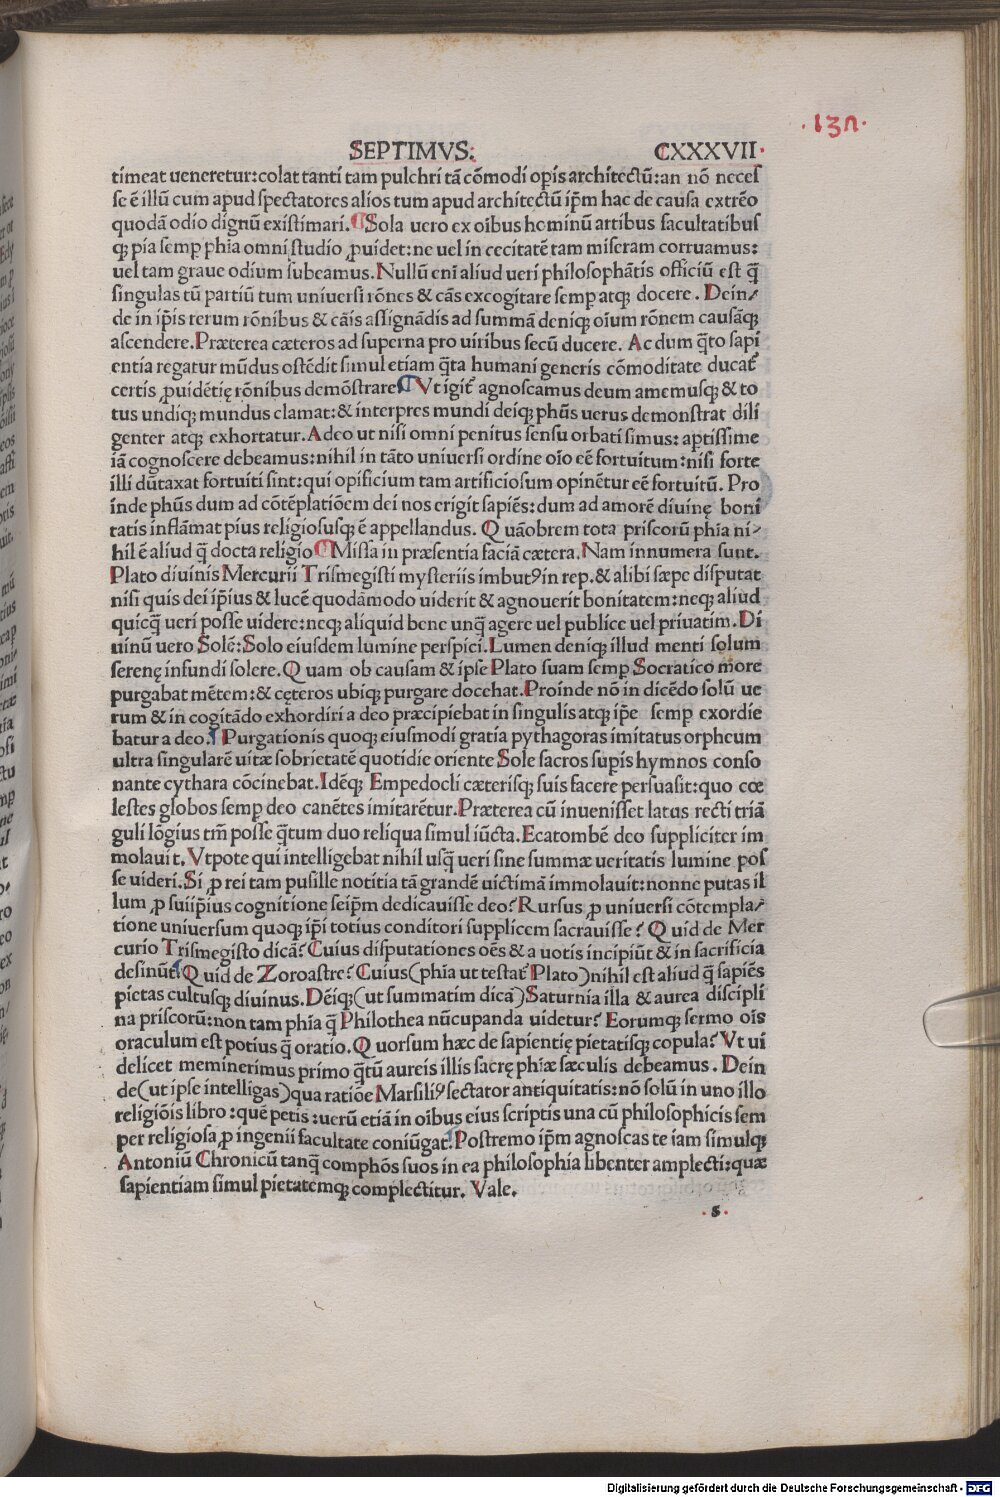 ·137·
SEPTIMVS: CXXXVII·
timeat ueneretur:colat tanti tam pulchri tā cōmodi op̄is architectū:an nō necesſ
ſe ē illū cum apud ſpectatores alios tum apud architectū ip̄m hac de cauſa extrēo
quodā odio dignū exiſtimari. Sola uero ex oībus hominū artibus facultatibuſ
qꝫ pia ſemꝑ phīa omni ſtudio ꝓuidet:ne uel in cecitatē tam miſeram corruamus:
uel tam graue odium ſubeamus. Nullū enī aliud ueri philoſophātis officiū eſt q̄
ſingulas tū partiū tum uniuerſi rōnes & cās excogitare ſemꝑ atqꝫ docere. Dein⸗
de in ip̄is rerum rōnibus & cāis aſſignādis ad ſummā deniqꝫ oīum rōnem cauſāqꝫ
aſcendere. Præterea cæteros ad ſuperna pro uiribus ſecū ducere. Ac dum q̄to ſapi
entia regatur mūdus oſtēdit ſimul etiam q̄ta humani generis cōmoditate ducat᷑
certis ꝓuidētię rōnibus demōſtrare Vt igit᷑ agnoſcamus deum amemuſqꝫ & to
tus undiqꝫ mundus clamat:& interpres mundi deiqꝫ phūs uerus demonſtrat dili
genter atqꝫ exhortatur. Adeo ut niſi omni penitus ſenſu orbati ſimus: aptiſſime
iā cognoſcere debeamus:nihil in tāto uniuerſi ordine oīo eē fortuitum:niſi forte
illi dūtaxat fortuiti ſint:qui opificium tam artificioſum opinētur eē fortuitū. Pro
inde phūs dum ad cōtēplatiōem dei nos erigit ſapiēs:dum ad amorē diuinę boni
tatis inflāmat pius religioſuſqꝫ ē appellandus. Quāobrem tota priſcorū phīa ni⸗
hil ē aliud q̄ docta religio Miſſa in præſentia faciā cætera. Nam innumera ſunt.
Plato diuinis Mercurii Triſmegiſti myſteriis imbutꝰ in rep. & alibi ſæpe diſputat
niſi quis dei ip̄ius & lucē quodāmodo uiderit & agnouerit bonitatem:neqꝫ aliud
quicq̄ ueri poſſe uidere:neqꝫ aliquid bene unq̄ agere uel publice uel priuatim. Di
uinū uero Solē:Solo eiuſdem lumine perſpici. Lumen deniqꝫ illud menti ſolum
ſerenę infundi ſolere. Quam ob cauſam & ipſe Plato ſuam ſemꝑ Socratico more
purgabat mētem:& cęteros ubiqꝫ purgare docebat. Proinde nō in dicēdo ſolū ue
rum & in cogitādo exhordiri a deo præcipiebat in ſingulis atqꝫ ip̄e ſemꝑ exordie
batur a deo. Purgationis quoqꝫ eiuſmodi gratia pythagoras imitatus orpheum
ultra ſingularē uitæ ſobrietatē quotidie oriente Sole ſacros ſuꝑis hymnos conſo
nante cythara cōcinebat. Idēqꝫ Empedocli cæteriſqꝫ ſuis facere perſuaſit:quo cœ
leſtes globos ſemꝑ deo canētes imitarētur. Præterea cū inueniſſet latus recti triā
guli lōgius tm̄ poſſe q̄tum duo reliqua ſimul iūcta. Ecatombē deo ſuppliciter im
molauit. Vtpote qui intelligebat nihil uſq̄ ueri ſine ſummæ ueritatis lumine poſ
ſe uideri. Si ꝓ rei tam puſille notitia tā grandē uictimā immolauit:nonne putas il
lum ꝓ ſui ip̄ius cognitione ſeip̄m dedicauiſſe deo? Rurſus ꝓ uniuerſi cōtempla⸗
tione uniuerſum quoqꝫ ip̄i totius conditori ſupplicem ſacrauiſſe? Quid de Mer
curio Triſmegiſto dicā? Cuius diſputationes oēs & a uotis incipiūt & in ſacrificia
deſinūt Quid de Zoroaſtre? Cuius(phīa ut teſtat᷑ Plato)nihil eſt aliud q̄ ſapiēs
pietas cultuſqꝫ diuinus. Dēiqꝫ(ut ſummatim dicā)Saturnia illa & aurea diſcipli
na priſcorū:non tam phīa q̄ Philothea nūcupanda uidetur? Eorumqꝫ ſermo oīs
oraculum eſt potius q̄ oratio. Quorſum hæc de ſapientię pietatiſqꝫ copula? Vt ui
delicet meminerimus primo q̄tū aureis illis ſacrę phīæ ſæculis debeamus. Dein
de(ut ipſe intelligas)qua ratiōe Marſiliꝰ ſectator antiquitatis:nō ſolū in uno illo
religiōis libro:quē petis:uerū etiā in oībus eius ſcriptis una cū philoſophicis ſem
per religioſa ꝓ ingenii facultate coniūgat. Poſtremo ip̄m agnoſcas te iam ſimulqꝫ
Antoniū Chronicū tanq̄ comphōs ſuos in ea philoſophia libenter amplecti:quæ
ſapientiam ſimul pietatemqꝫ complectitur. Vale.
·s·
Digitalisierung gefördert durch die Deutsche Forschungsgemeinschaft - DFG